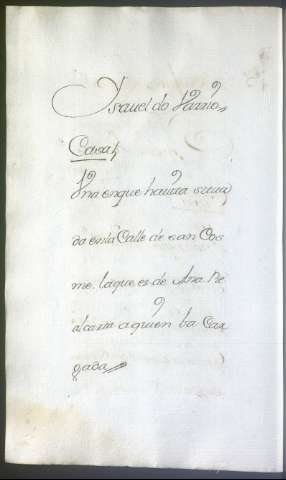 Ysauel do Varrio
Casa
Vna en que hauita situa
da en la Calle de san Cos
me. la que es de Ana. Be
alcaxa a quien ba Car
gada